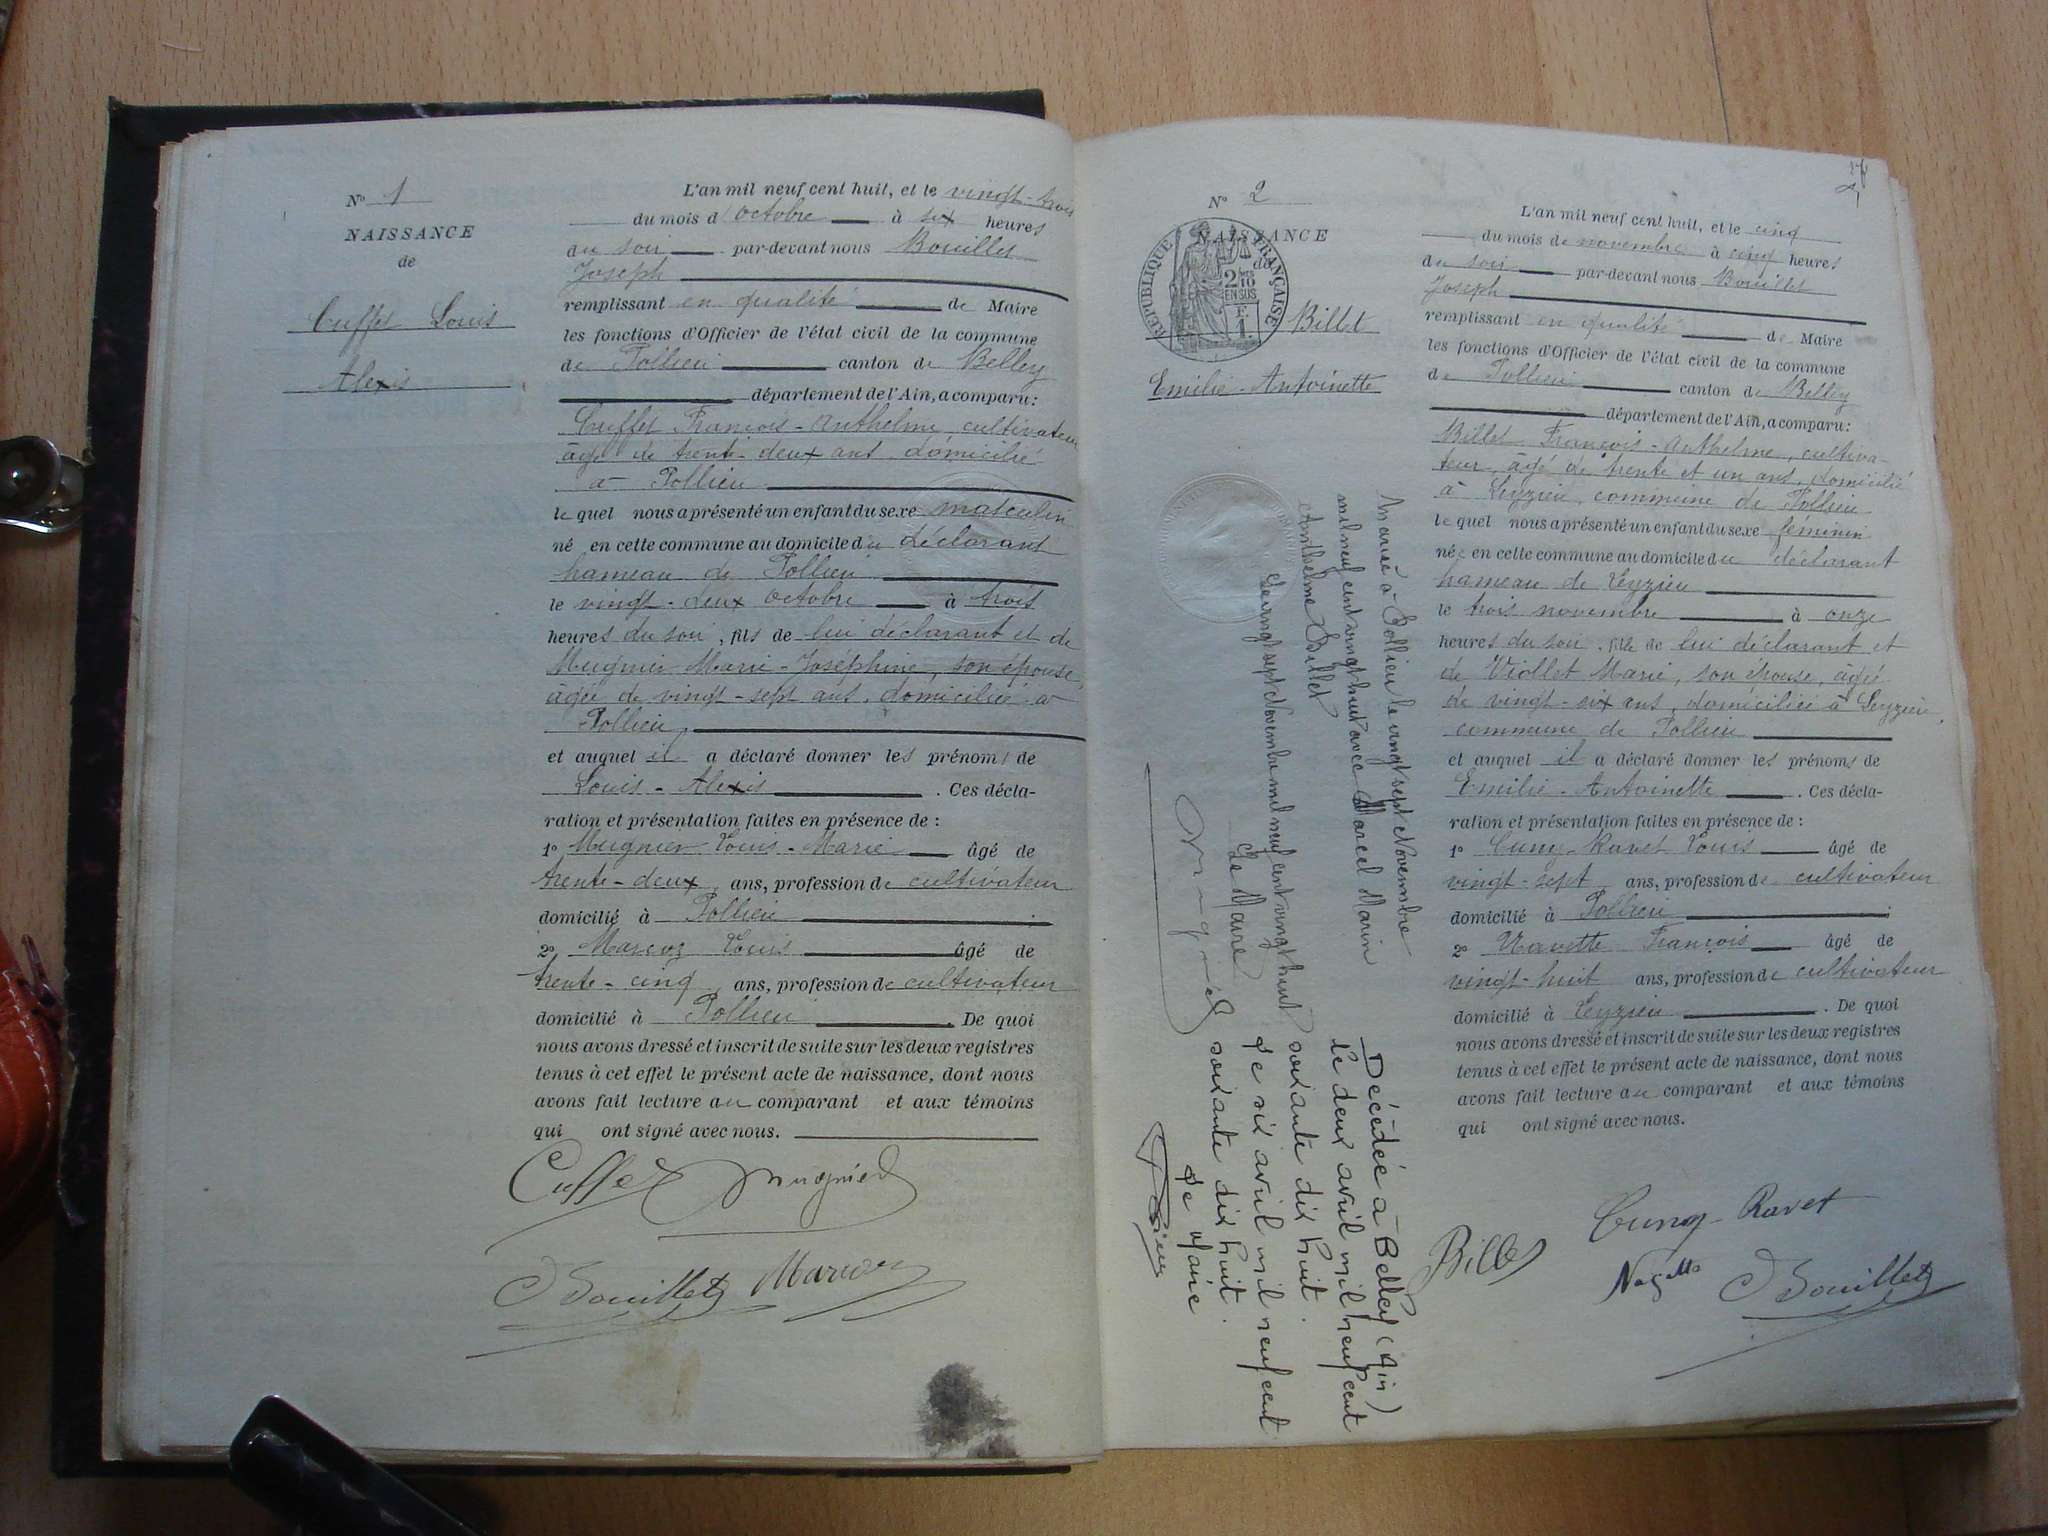 N° 1
NAISSANCE
de
Cuffet Louis
Alexis
L'an mil neuf cent huit, et le vingt-trois
du mois d'octobre à six heures
du soir par-devant nous Bouillet
Joseph
remplissant en qualité de Maire
les fonctions d'Officier de l'état civil de la commune
de Pollieu canton de Belley
département de l'Ain, a comparu:
Cuffet François-Anthelme, cultivateur
âgé de trente-deux ans, domicilié
à Pollieu
le quel nous a présenté un enfant du sexe masculin
né en cette commune au domicile du déclarant
hameau de Pollieu
le vingt-deux octobre à trois
heures du soir, fils de lui déclarant et de
Mugnier Marie-Joséphine, son épouse,
âgée de vingt-sept ans, domiciliée à
Pollieu,
et auquel il a déclaré donner les prénoms de
Louis-Alexis. Ces décla-
ration et présentation faites en présence de:
1° Mugnier Louis-Marie âgé de
trente-deux ans, profession de cultivateur
domicilié à Pollieu
2° Marcoz Louis âgé de
trente-cinq ans, profession de cultivateur
domicilié à Pollieu. De quoi
nous avons dressé et inscrit de suite sur les deux registres
tenus à cet effet le présent acte de naissance, dont nous
avons fait lecture au comparant et aux témoins
qui ont signé avec nous.
Cuffet Mugnier
J Bouillet Marcoz
N° 2
NAISSANCE
de
RÉPUBLIQUE FRANÇAISE
2/10
EN SUS
Billet
Emilie-Antoinette
Mariée à Pollieu le vingt sept Novembre
mil neuf cent vingt huit avec Marcel Marin
Anthelme Billet
Le vingt sept Novembre mil neuf cent vingt huit
Le Maire
Mugnier
Décédée à Belley (Ain)
le deux avril mil neuf cent
soixante dix huit.
Le six avril mil neuf cent
soixante dix huit.
Le Maire
L'an mil neuf cent huit, et le cinq
du mois de novembre à cinq heures
du soir par-devant nous Bouillet
Joseph
remplissant en qualité de Maire
les fonctions d'Officier de l'état civil de la commune
de Pollieu canton de Belley
département de l'Ain, a comparu:
Billet François-Anthelme, cultiva-
teur, âgé de trente et un ans, domicilié
à Leyzieu, commune de Pollieu
le quel nous a présenté un enfant du sexe féminin
née en cette commune au domicile du déclarant
hameau de Leyzieu
le trois novembre à onze
heures du soir, fille de lui déclarant et
de Viollet Marie, son épouse, âgée
de vingt-six ans, domiciliée à Leyzieu,
commune de Pollieu
et auquel il a déclaré donner les prénoms de
Emilie-Antoinette. Ces décla-
ration et présentation faites en présence de:
1° Cuny-Ravet Louis âgé de
vingt-sept ans, profession de cultivateur
domicilié à Pollieu
2° François âgé de
vingt-huit ans, profession de cultivateur
domicilié à Leyzieu. De quoi
nous avons dressé et inscrit de suite sur les deux registres
tenus à cet effet le présent acte de naissance, dont nous
avons fait lecture au comparant et aux témoins
qui ont signé avec nous.
Cuny-Ravet
Billet
J Bouillet